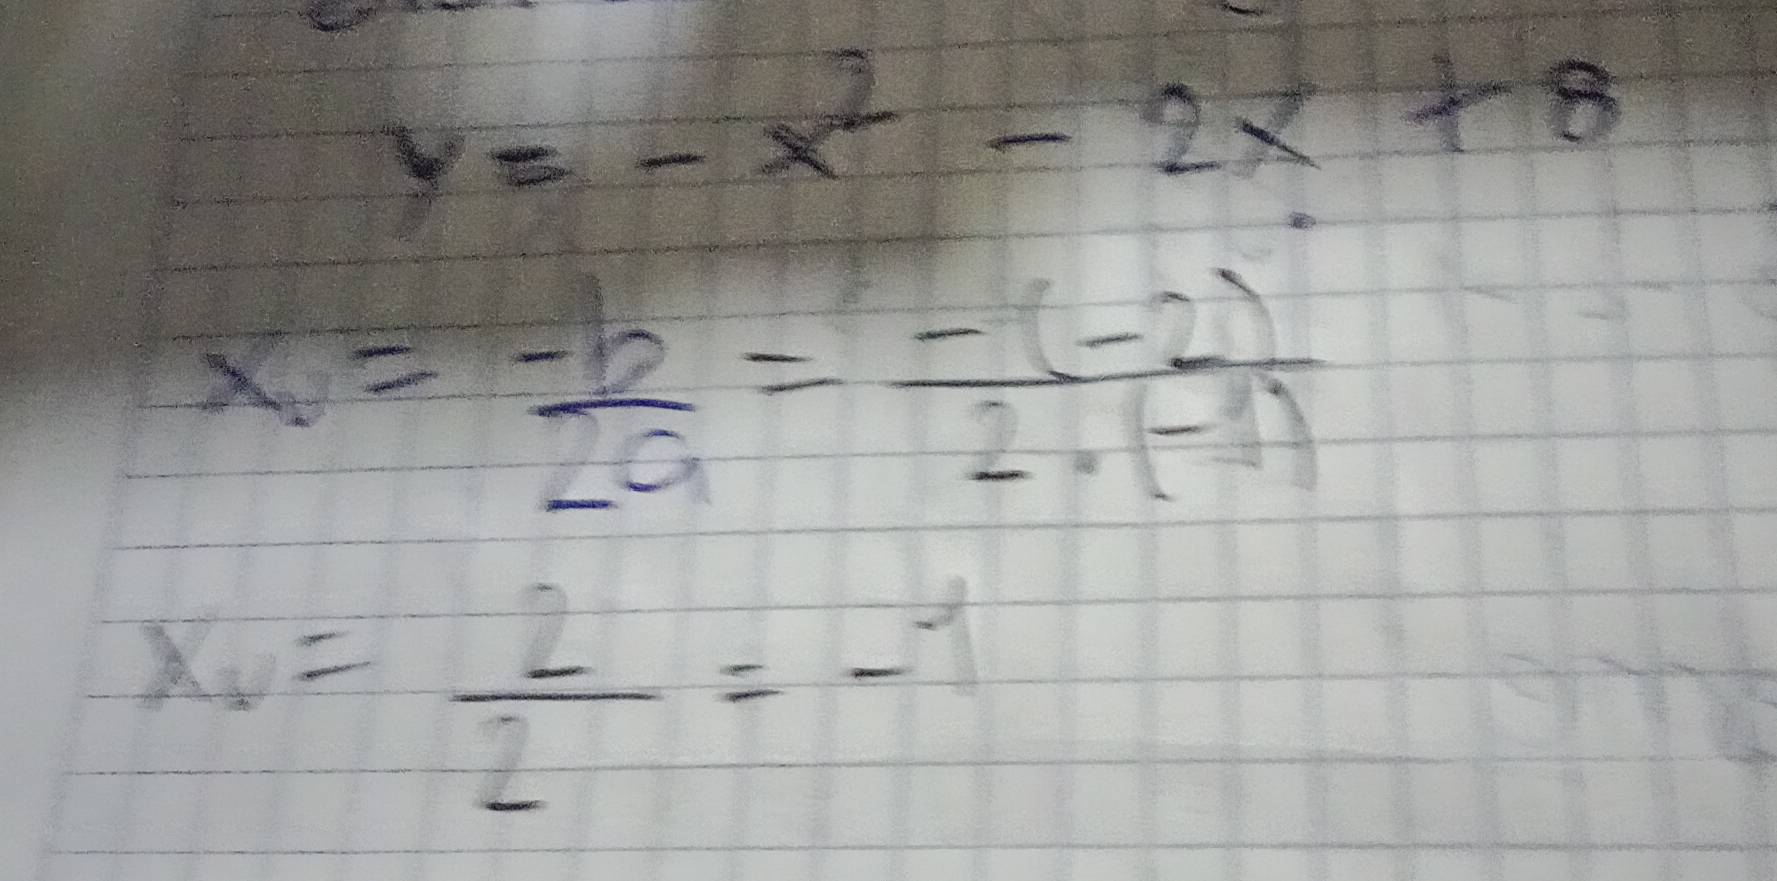 y = - x² - 2x + 8
xᵥ = -b/2a = -(-2)/2·(-1)
xᵥ = 2/2 = -1